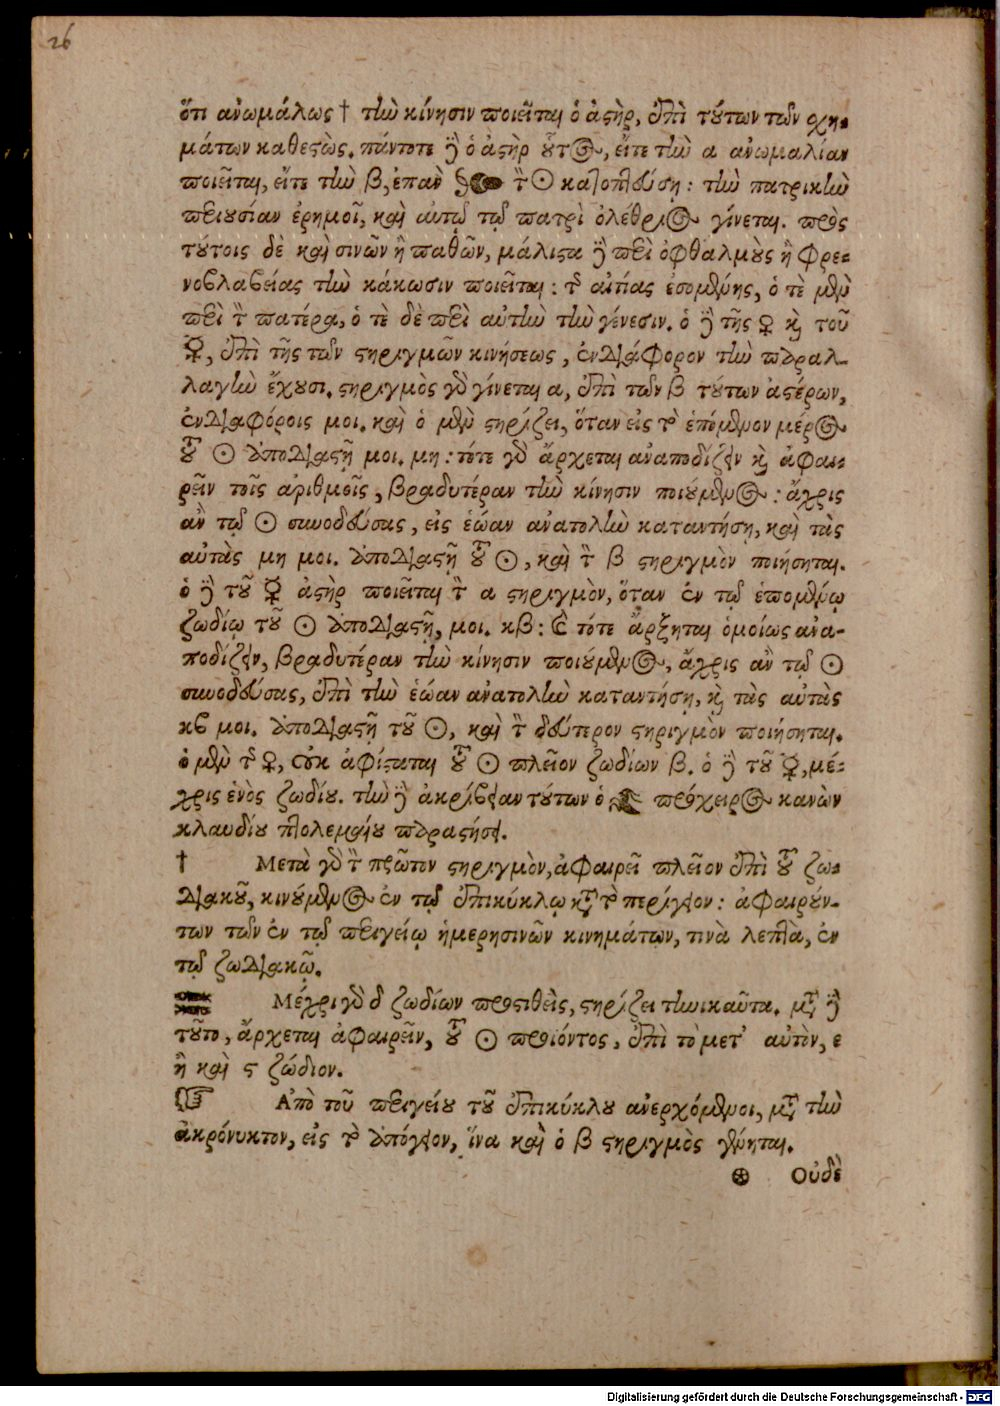 26
ὅτι ἀνωμάλως † τὴν κίνησιν ποιεῖται ὁ ἀςὴρ, ἐπὶ τούτων τῶν σχη-
μάτων καθεςὼς. πάντοτε δὲ ὁ ἀςὴρ οὗτος, εἴτε τὴν α ἀνωμαλίαν
ποιεῖται, εἴτε τὴν β, ἐπὰν τὸν ☉ κατοπτεύσῃ: τὴν πατρικὴν
περιουσίαν ἐρημοῖ, καὶ αὐτῷ τῷ πατρὶ ὀλέθριος γίνεται. πρὸς
τούτοις δὲ καὶ σινῶν ἢ παθῶν, μάλιςα δὲ περὶ ὀφθαλμοὺς ἢ φρε-
νοβλαβείας τὴν κάκωσιν ποιεῖται: τῆς αἰτίας ἐσομένης, ὁ τὲ μὲν
περὶ τὸν πατέρα, ὁ τὲ δὲ περὶ αὐτὴν τὴν γένεσιν. ὁ δὲ τῆς ♀ καὶ τοῦ
☿, ἐπὶ τῆς τῶν ςηριγμῶν κινήσεως, ἐνδιάφορον τὴν παραλ-
λαγὴν ἔχουσι. ςηριγμὸς γὰρ γίνεται α, ἐπὶ τῶν β τούτων ἀςέρων,
ἐνδιαφόροις μοι. καὶ ὁ μὲν ςηρίζει, ὅταν εἰς τὸ ἑπόμενον μέρος
τοῦ ☉ ἀποδιαςῇ μοι. μη: τότε γὰρ ἄρχεται ἀναποδίζειν καὶ ἀφαι-
ρεῖν τοῖς ἀριθμοῖς, βραδυτέραν τὴν κίνησιν ποιούμενος: ἄχρις
ἂν τῷ ☉ συνοδεύσας, εἰς ἑῴαν ἀνατολὴν καταντήσῃ, καὶ τὰς
αὐτὰς μη μοι. ἀποδιαςῇ τοῦ ☉, καὶ τὸν β ςηριγμὸν ποιήσηται.
ὁ δὲ τοῦ ☿ ἀςὴρ ποιεῖται τὸν α ςηριγμὸν, ὅταν ἐν τῷ ἑπομένῳ
ζωδίῳ τοῦ ☉ ἀποδιαςῇ, μοι. κβ: καὶ τότε ἄρξηται ὁμοίως ἀνα-
ποδίζειν, βραδυτέραν τὴν κίνησιν ποιούμενος, ἄχρις ἂν τῷ ☉
συνοδεύσας, ἐπὶ τὴν ἑῴαν ἀνατολὴν καταντήσῃ, καὶ τὰς αὐτὰς
κβ μοι. ἀποδιαςῇ τοῦ ☉, καὶ τὸν δεύτερον ςηριγμὸν ποιήσηται.
ὁ μὲν τῆς ♀, οὐκ ἀφίςαται τοῦ ☉ πλεῖον ζωδίων β. ὁ δὲ τοῦ ☿, μέ-
χρις ἑνὸς ζωδίου. τὴν δὲ ἀκρίβειαν τούτων ὁ πρόχειρος κανὼν
κλαυδίου πτολεμαίου παραςήσει.
† Μετὰ γὰρ τὸν πρῶτον ςηριγμὸν, ἀφαιρεῖ πλεῖον ἐπὶ τοῦ ζω-
διακοῦ, κινούμενος ἐν τῷ ἐπικύκλῳ κατὰ τὸ περίγειον: ἀφαιρούν-
των τῶν ἐν τῷ περιγείῳ ἡμερησινῶν κινημάτων, τινὰ λεπτὰ, ἐν
τῷ ζωδιακῷ.
Μέχρι γὰρ δ ζωδίων προςιθεὶς, ςηρίζει τηνικαῦτα. μετὰ δὲ
τοῦτο, ἄρχεται ἀφαιρεῖν, τοῦ ☉ προϊόντος, ἐπὶ τὸ μετ' αὐτὸν, ε
ἢ καὶ ς ζώδιον.
☞ Ἀπὸ τοῦ περιγείου τοῦ ἐπικύκλου ἀνερχόμενοι, μετὰ τὴν
ἀκρόνυκτον, εἰς τὸ ἀπόγειον, ἵνα καὶ ὁ β ςηριγμὸς γένηται.
⊛ Οὐδὲ
Digitalisierung gefördert durch die Deutsche Forschungsgemeinschaft - DFG